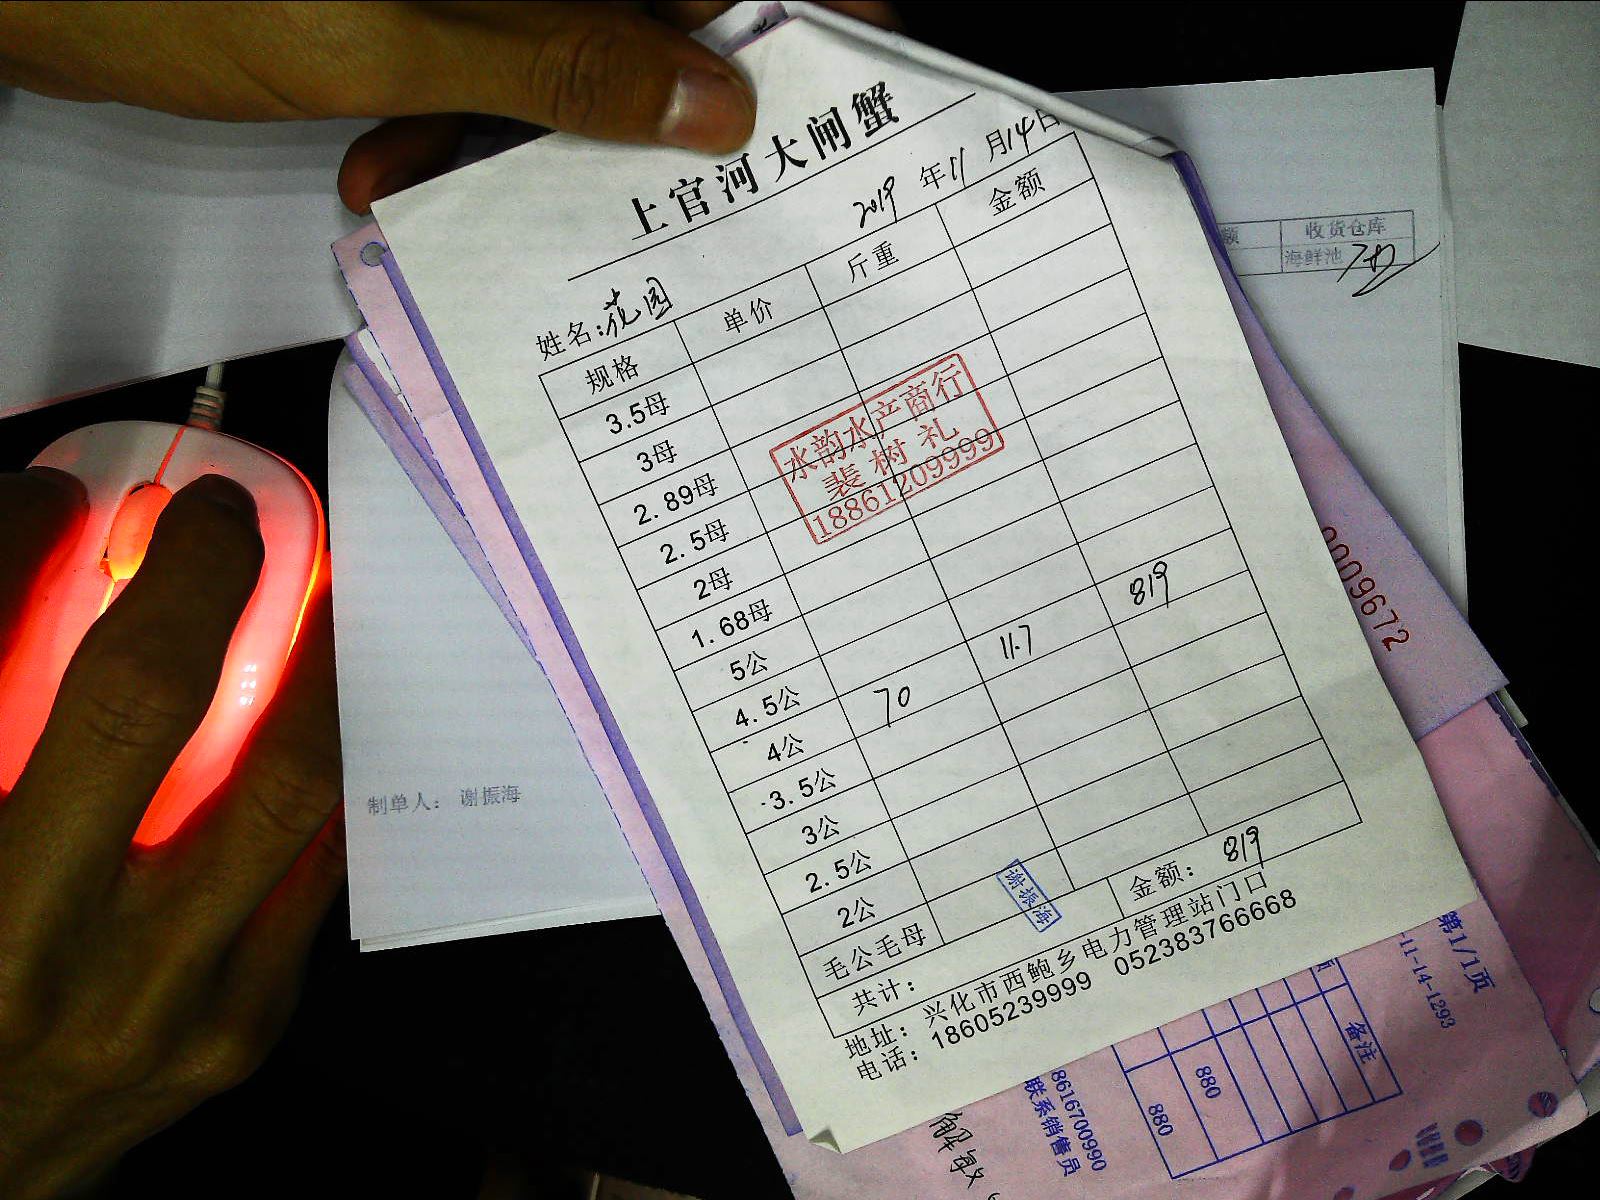 上官河大闸蟹
2019 年 11 月 14 日
姓名:花园
规格 单价 斤重 金额
3.5母
3母
2.89母
2.5母
2母
1.68母
5公
4.5公
4公 70 11.7 819
3.5公
3公
2.5公
2公
毛公毛母
共计: 金额: 819
地址: 兴化市西鲍乡电力管理站门口
电话: 18605239999 052383766668
水韵水产商行
裴树礼
18861209999
谢振海
额 收货仓库
海鲜池
0009672
制单人: 谢振海
第1/1页
-11-14-1293
备注
880
880
8616700990
联系销售员